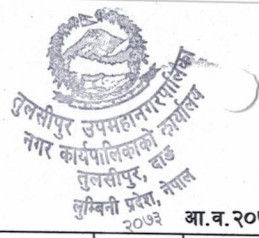 तुलसीपुर उपमहानगरपालिका
नगर कार्यपालिकाको कार्यालय
तुलसीपुर, दाङ
लुम्बिनी प्रदेश, नेपाल
२०७३
आ.व.२०७